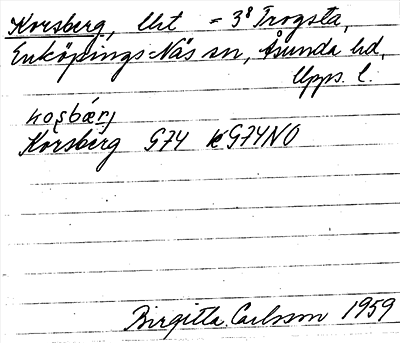 Korsberg, lht = 3⁸ Trogsta,
Enköpings-Näs sn, Åsunda hd,
Upps. l.
Korsberg G74 k G74NO
Birgitta Carlsson 1959